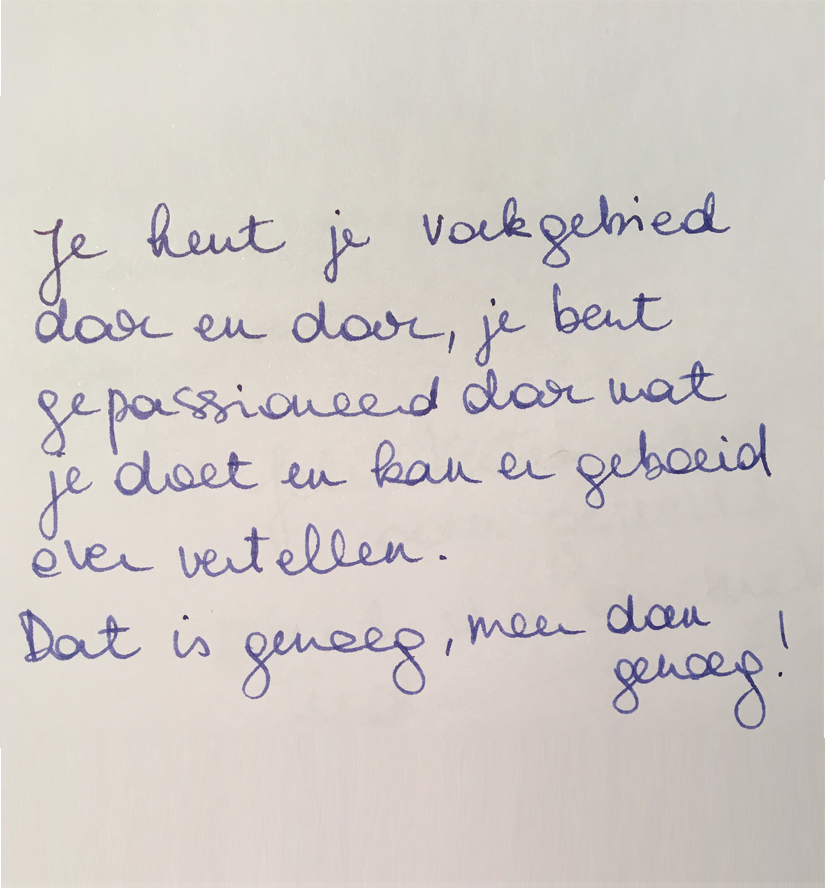 Je kent je vakgebied
door en door, je bent
gepassioneerd door wat
je doet en kan er geboeid
over vertellen.
Dat is genoeg, meer dan
genoeg!